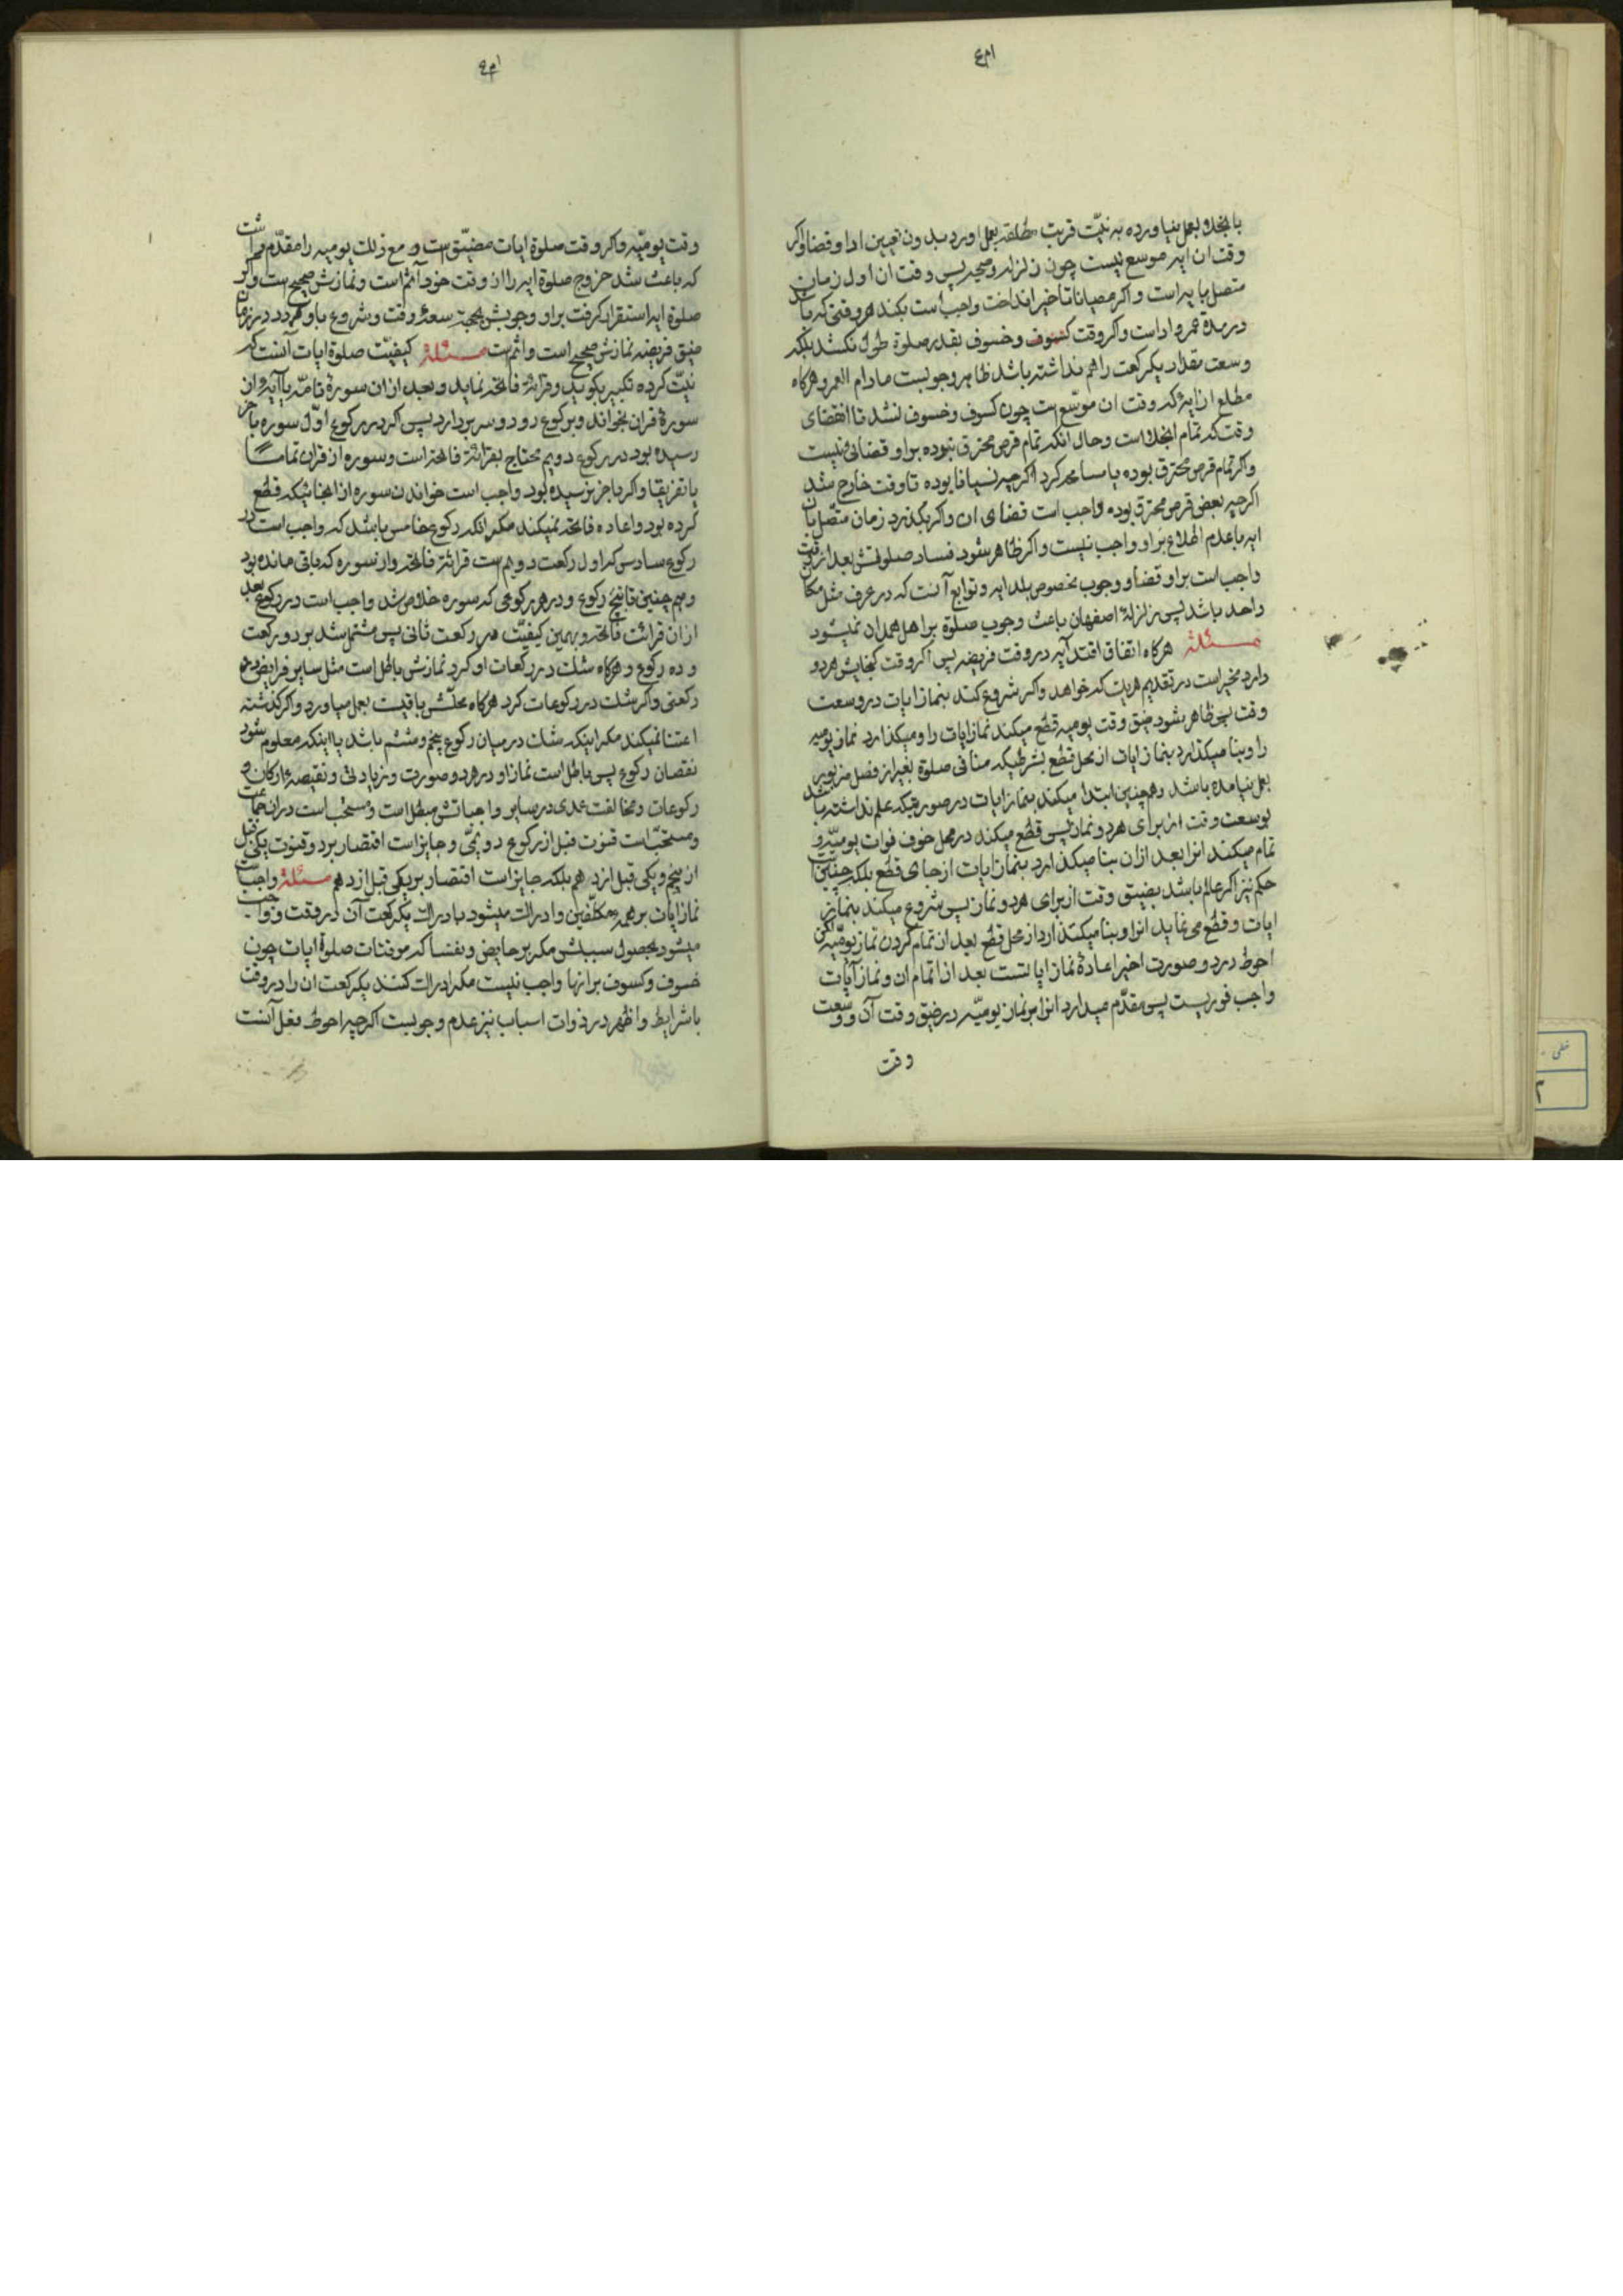 با نجلا بعمل نیاورده به نیّت قربت مطلقه بعمل اورد بدون تعیین ادا و قضا و اکر
وقت ان ایه موسع نیست چون زلزله و صیحه پس وقت ان اول زمان
متصل بایه است و اکر عصیانا تاخیر انداخت واجب است بکند هر وقتی که باشد
در مدة عمر و ادا است و اکر وقت کسوف و خسوف بقدر صلوة طول نکشد بلکه
وسعت مقدار یکرکعت را هم نداشته باشد ظاهر وجوبست مادام العمر و هرکاه
مطلع از ایهٔ که وقت ان موسّع است چون کسوف و خسوف نشد تا انقضای
وقت که تمام انجلا است و حال آنکه تمام قرص محترق نبوده بر او قضائی نیست
و اکر تمام قرص محترق بوده یا مسامحه کرد اکرچه نسیانا بوده تا وقت خارج شد
اکرچه بعض قرص محترق بوده واجب است قضای ان و اکر بکذرد زمان متصل بان
ایه با عدم اطلاع بر او واجب نیست و اکر ظاهر شود فساد صلوتش بعد از وقت
واجب است بر او قضا و وجوب مخصوص بلد ایه و توابع آنست که در عرف مثل مکان
واحد باشد پس زلزلهٔ اصفهان باعث وجوب صلوة بر اهل همدان نمیشود
مسئلة هرکاه اتفاق افتد آیه در وقت فریضه پس اکر وقت کنجایش هر دو
دارد مخیر است در تقدیم هریک که خواهد و اکر شروع کند بنماز ایات در وسعت
وقت پس ظاهر بشود ضیق وقت یومیه قطع میکند نماز ایات را و میکذارد نماز یومیه
را و بنا میکذارد بنماز ایات از محل قطع بشرطیکه منافی صلوة بغیر از فصل مزبور
بعمل نیامده باشد و همچنین ابتدا میکند بنماز ایات در صورتیکه علم نداشته باشد
بوسعت وقت از برای هر دو نماز پس قطع میکند در محل خوف فوات یومیّه و
تمام میکند انرا بعد از ان بنا میکذارد بنماز ایات از جای قطع بلکه چنین است
حکم نیز اکر عالم باشد بضیق وقت از برای هر دو نماز پس شروع میکند بنماز
ایات و قطع می نماید انرا و بنا میکذارد از محل قطع بعد از تمام کردن نماز یومیّه لکن
احوط در دو صورت اخیر اعادهٔ نماز ایاتست بعد از اتمام ان و نماز آیات
واجب فوریست پس مقدّم میدارد انرا بر نماز یومیّه در ضیق وقت آن و وسعت
وقت
وقت یومیّه و اکر وقت صلوة ایات مضیّق است و مع ذلک یومیه را مقدّم داشت
که باعث شد خروج صلوة ایه را از وقت خود آثم است و نمازش صحیح است و اکر
صلوة ایه استقرار کرفت بر او وجوبش بجهة سعهٔ وقت و شروع باو کردد در زمان
ضیق فریضه نمازش صحیح است و اثم است مسئلة کیفیّت صلوة ایات آنست که
نیّت کرده تکبیر بکوید و قرائة فاتحه نماید و بعد از ان سورة تامّه یا آیهٔ از ان
سورة قران بخواند و برکوع رود و سر بردارد پس اکر در رکوع اوّل سوره باخر
رسیده بود در رکوع دویم محتاج بقرائة فاتحه است و سوره از قران تماما
یا تفریقا و اکر باخر نرسیده بود واجب است خواندن سوره از انجائیکه قطع
کرده بود و اعاده فاتحه نمیکند مکر انکه رکوع خامس باشد که واجب است در
رکوع سادس که اول رکعت دویم است قرائة فاتحه و از سوره که باقی مانده بود
و هم چنین تا پنج رکوع و در هر رکوعی که سوره خلاص شد واجب است در رکوع بعد
از ان قرائت فاتحه و بهمین کیفیّت در رکعت ثانی پس مشتمل شد بر دو رکعت
و ده رکوع و هرکاه شک در رکعات او کرد نمازش باطل است مثل سایر فرایض دو
رکعتی و اکر شک در رکوعات کرد هرکاه محلّش باقیست بعمل میاورد و اکر کذشته
اعتنا نمیکند مکر اینکه شک در میان رکوع پنجم و ششم باشد یا اینکه معلوم شود
نقصان رکوع پس باطل است نماز او در هر دو صورت و زیادتی و نقیصهٔ ارکان و
رکوعات و مخالفت عمدی در سایر واجباتش مبطل است و مستحب است در ان جماعت
و مستحبّ است قنوت قبل از رکوع دویمّی و جایز است اقتصار بر دو قنوت یکی قبل
از پنجم و یکی قبل از دهم بلکه جایز است اقتصار بر یکی قبل از دهم مسئلة واجب است
نماز ایات بر همهٔ مکلّفین و ادراک میشود بادراک یکرکعت آن در وقت و واجب
میشود بحصول سببش مکر بر حایض و نفسا که موقتات صلوة ایات چون
خسوف و کسوف بر انها واجب نیست مکر ادراک کنند یکرکعت ان را در وقت
با شرایط و اظهر در ذوات اسباب نیز عدم وجوبست اکرچه احوط فعل آنست